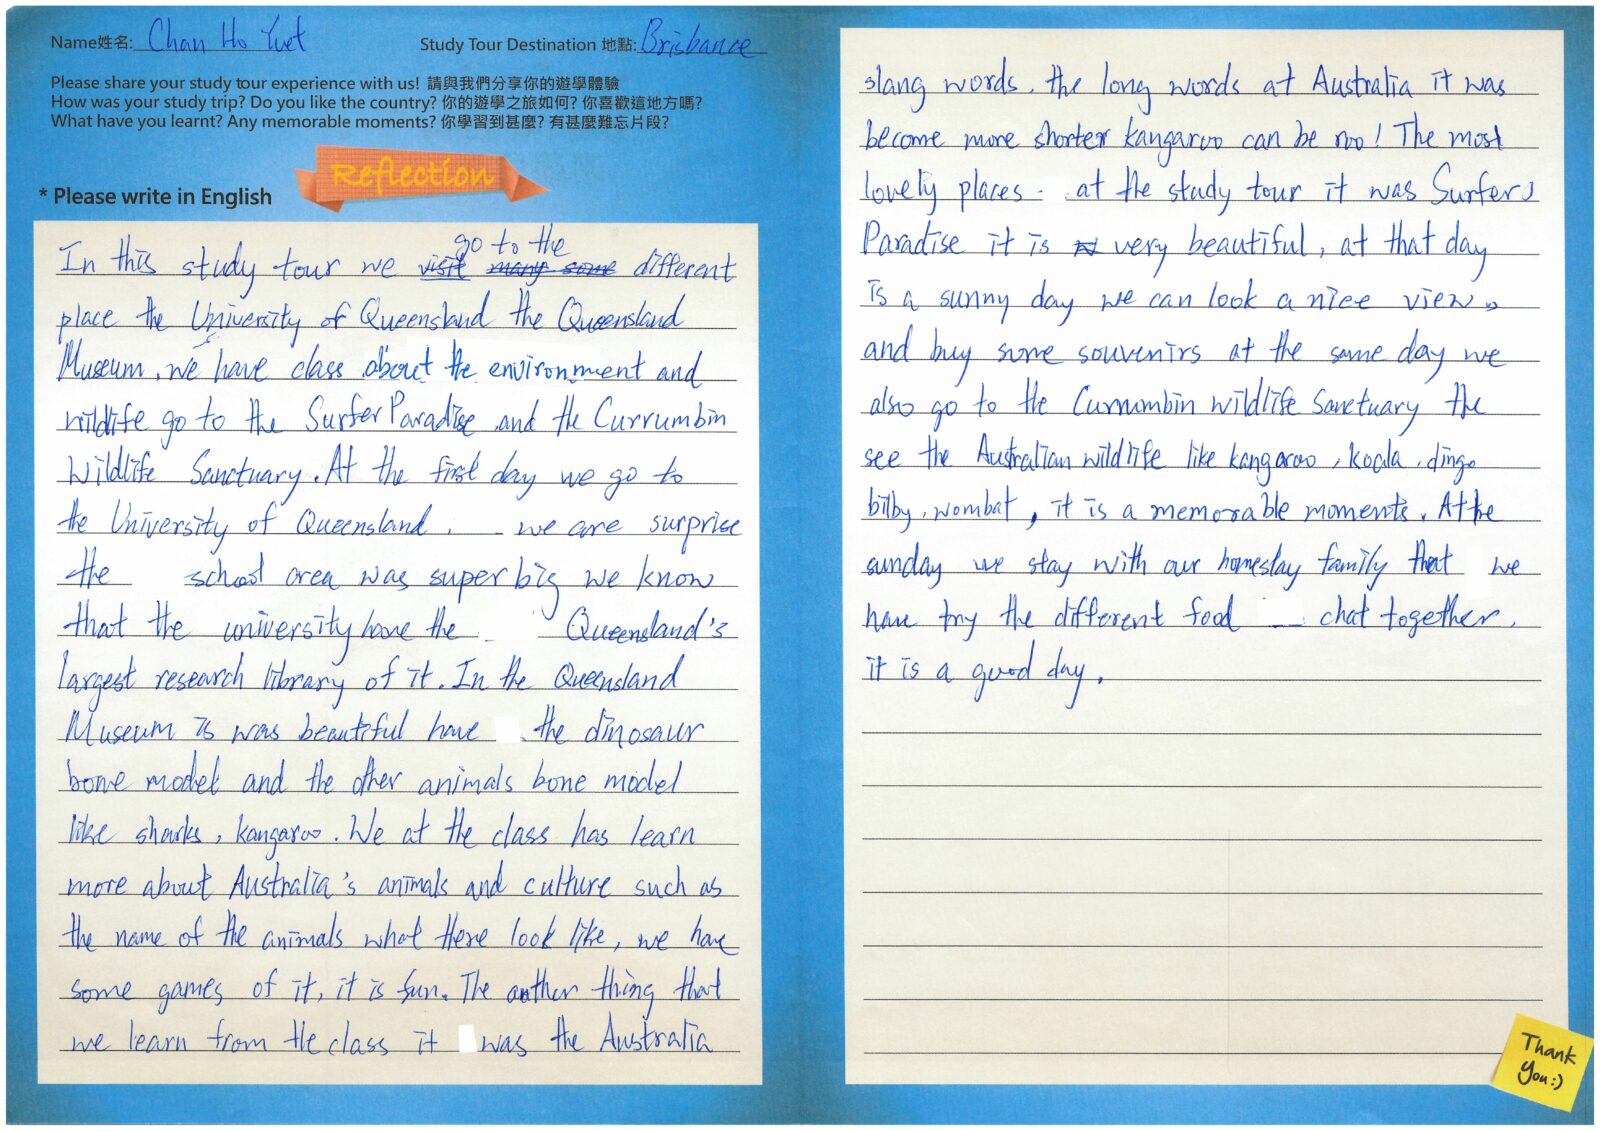 Name姓名: Chan Ho Yuet
Study Tour Destination 地點: Brisbance
Please share your study tour experience with us! 請與我們分享你的遊學體驗
How was your study trip? Do you like the country? 你的遊學之旅如何? 你喜歡這地方嗎?
What have you learnt? Any memorable moments? 你學習到甚麼? 有甚麼難忘片段?
Reflection
* Please write in English
go to the
In this study tour we visit many some different
place the University of Queensland the Queensland
Museum, we have class about the environment and
wildlife go to the Surfer Paradise and the Currumbin
Wildlife Sanctuary. At the first day we go to
the University of Queensland. we are surprise
the school area was super big we know
that the university have the Queensland's
largest research library of it. In the Queensland
Museum is was beautiful have the dinosaur
bone model and the other animals bone model
like sharks, kangaroo. We at the class has learn
more about Australia's animals and culture such as
the name of the animals what there look like, we have
some games of it, it is fun. The another thing that
we learn from the class it was the Australia
slang words. the long words at Australia it was
become more shorter kangaroo can be roo! The most
lovely places at the study tour it was Surfers
Paradise it is very beautiful, at that day
is a sunny day we can look a nice view,
and buy some souvenirs at the same day we
also go to the Currumbin wildlife Sanctuary the
see the Australian wildlife like kangaroo, koala, dingo
bilby, wombat, it is a memorable moments. At the
sunday we stay with our homestay family that we
have try the different food chat together.
it is a good day.
Thank
You:)